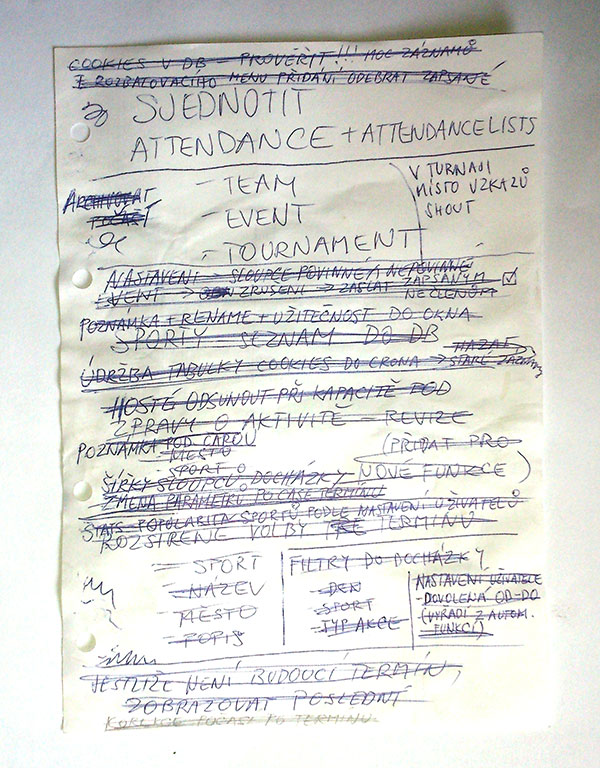 COOKIES V DB - PROVĚŘIT!!! MOC ZÁZNAMŮ
Z ROZBALOVACÍHO MENU PŘIDÁNÍ ODEBRAT ZAPSANÉ
SJEDNOTIT
ATTENDANCE + ATTENDANCELISTS
ARCHIVOVAT
- TEAM
- EVENT
- TOURNAMENT
V TURNAJI
MÍSTO VZKAZŮ
SHOUT
NASTAVENÍ → SLOUPCE POVINNÉ / NEPOVINNÉ
EVENT → ZRUŠENÍ → ZASLAT ZAPSANÝM
NEČLENŮM
POZNÁMKA + RENAME + UŽITEČNOST DO OKNA
SPORTY SEZNAM DO DB
ÚDRŽBA TABULKY COOKIES DO CRONA → MAZAT
STARÉ ZÁZNAMY
HOSTÉ ODSUNOUT PŘI KAPACITĚ POD
ZPRÁVY O AKTIVITĚ - REVIZE
POZNÁMKA POD CAROU
- MĚSTO
- SPORT
(PŘIDAT PRO
NOVÉ FUNKCE)
ŠÍŘKY SLOUPCŮ DOCHÁZKY
ZMĚNA PARAMETRŮ PO ČASE TERMÍNU
STATS POPULARITA SPORTŮ PODLE NASTAVENÍ UŽIVATELŮ
ROZŠÍŘENÉ VOLBY TERMÍNU
- SPORT
- NÁZEV
- MĚSTO
- POPIS
FILTRY DO DOCHÁZKY
- DEN
- SPORT
- TYP AKCE
NASTAVENÍ UŽIVATELE
- DOVOLENÁ OD-DO
(VYŘADÍ Z AUTOM.
FUNKCÍ)
JESTLIŽE NENÍ BUDOUCÍ TERMÍN,
ZOBRAZOVAT POSLEDNÍ